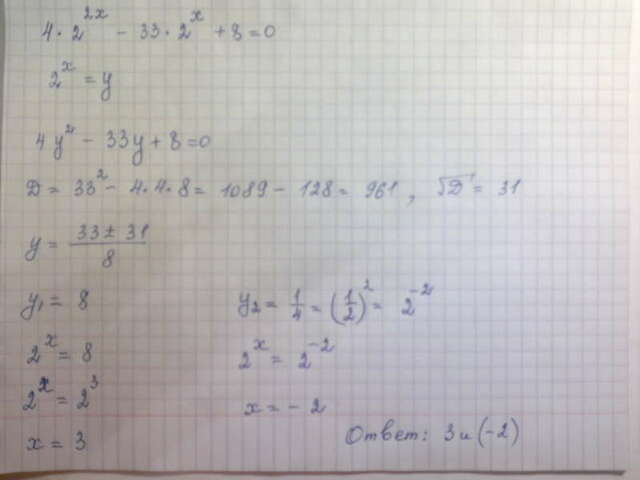 4 · 2^{2x} − 33 · 2^x + 8 = 0
2^x = y
4y² − 33y + 8 = 0
D = 33² − 4·4·8 = 1089 − 128 = 961, √D = 31
y = (33 ± 31)/8
y₁ = 8 y₂ = 1/4 = (1/2)² = 2^{−2}
2^x = 8 2^x = 2^{−2}
2^x = 2³ x = −2
x = 3 Ответ: 3 и (−2)